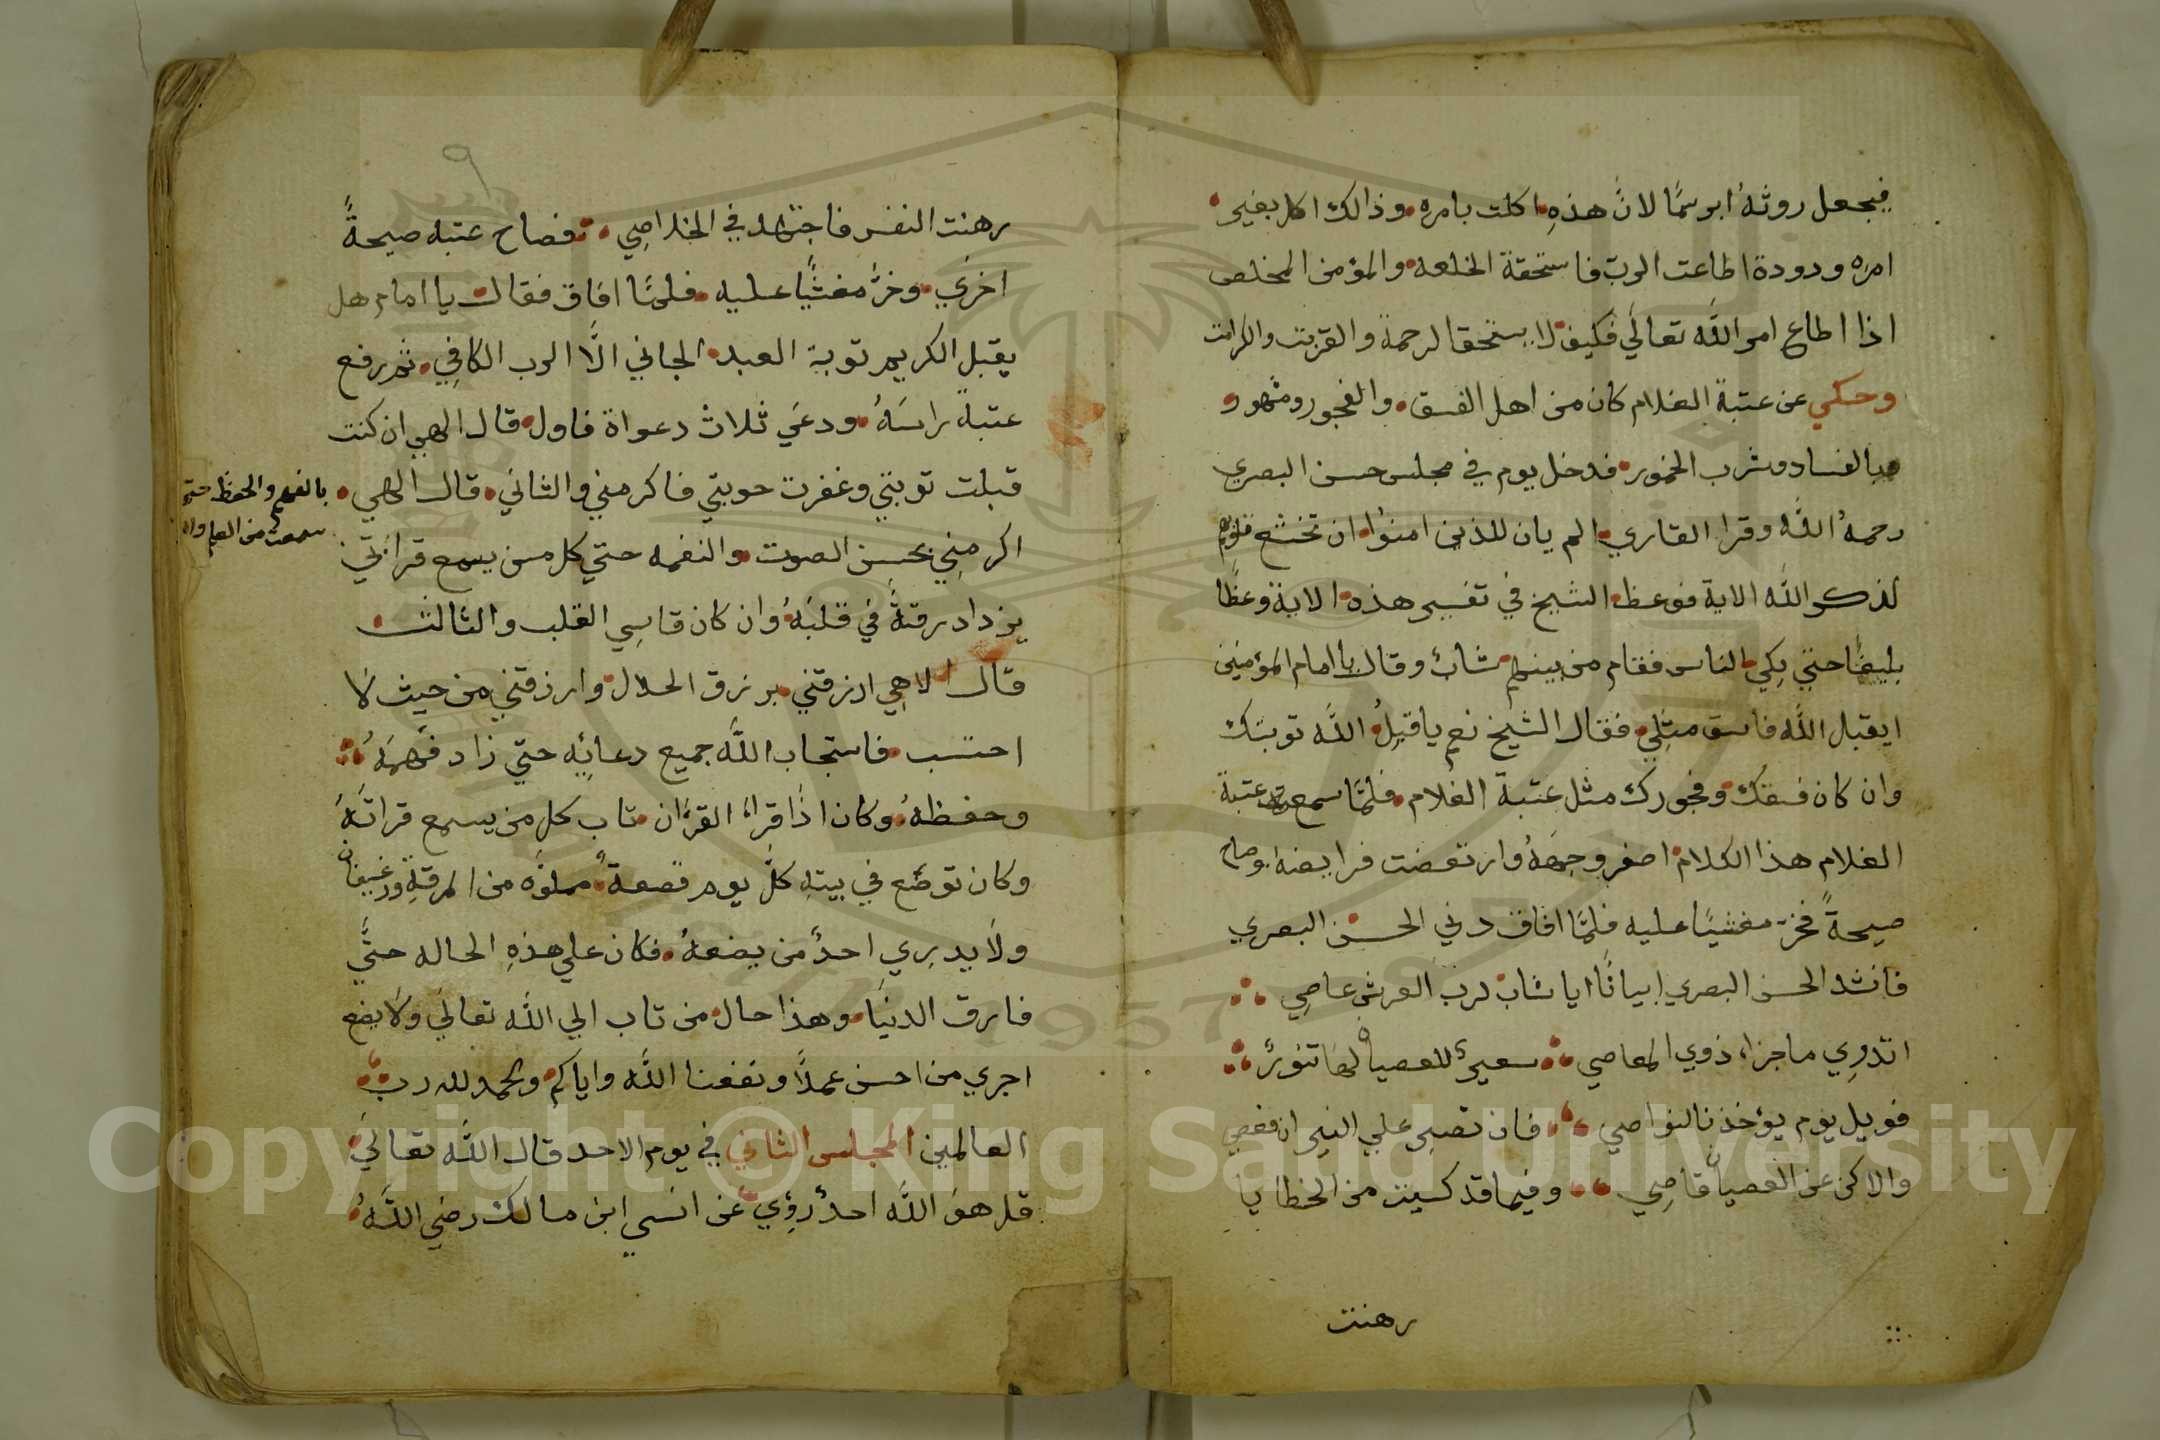 فيجعل روثهُ ابرسمًا لانّ هذهِ اكلت بامره وذالك اكل بغير
امره ودودة اطاعت الربّ فاستحقة الخلعه والمؤمن المخلص
اذا اطاع امر اللّه تعالَي فكيف لا يستحقا لرحمة والقربت والكرامت
وحكي عن عتبة الغلام كان من اهل الفسق والفجور ومشهور
بالفساد وشرب الخمور فدخل يوم في مجلس حسن البصري
رحمهُ اللّه وقرا القاري الم يان للذين امنوُا ان تخشع قلوبهم
لذكر اللّه الاية فوعظ الشيخ في تفسير هذه الاية وعظًا
بليغًا حتي بكي الناس فقام من بينهم شابٌ وقال يا امام المؤمنين
ايقبل اللّه فاسق مثلِي فقال الشيخ نعم ياقبِلُ اللّه توبتك
وان كان فسقك وفجورك مثل عتبة الغلام فلمّا سمع عتبة
الغلام هذا الكلام اصفر وجههُ وارتعضت فرايضه وصاح
صيحةً فخرّ مغشيًا عليه فلمّا افاق دني الحسن البصري
فانشد الحسن البصري ابياتًا ايا شابّ لرب العرش عاصِي
اتدرِي ماجزاء ذوي المعاصي سعيرٌ للعصياه لهَا تنورٌ
فويل يوم يؤخذنالنواصي فان تصبِر علي النير ان فعصي
والاكن عن العصيان قاصِي وفيما قد كسبت من الخطايا
رهنت
رهنت النفس فاجتهد في الخلاصِي فصاح عتبه صيحةً
اخرَي وخرّ مغشيًّا عليه فلمّا افاق فقال يا امام هل
يقبل الكريم توبة العبد الجاني الّا الرب الكافِي ثم رفع
عتبة راسَهُ ودعَي ثلاث دعواة فاول قال الهي ان كنت
قبلت توبتي وغفرت حوبتي فاكرمني والثاني قال الهي
بالفهم والحفظ حتي
سمعت من العلم وان
اكرمنِي بحسن الصوت والنغمه حتي كل من يسمع قراتي
يزداد رقتةً فِي قلبَهُ وان كان قاسِي القلب والثالث
قال الاهِي ارزقتني برزق الحلال وارزقتني من حيث لا
احتسب فاستجاب اللّه جميع دعائِه حتّي زاد فَهمَهُ
وحفظهُ وكان اذَا قراءَ القرْان تاب كل من يسمع قراتَهُ
وكان توضَع في بيتهِ كلّ يوم قصعةٌ مملوّه من المرقةِ ورغيفان
ولاَ يدرِي احدٌ من يضعهُ فكان علي هذهِ الحاله حتَّي
فارق الدنيَا وهذا حال من تاب الي اللّه تعالَي ولاَ يضع
اجري من احسن عملاً ونفعنا اللّه واياكم والحمد لله ربّ
العالمين المجلس الثاني في يوم الاحد قال اللّه تعالَي
قل هوَ اللّه احدٌ روِي عن انسي ابن مالك رضي اللّهُ
Copyright © King Saud University
1957